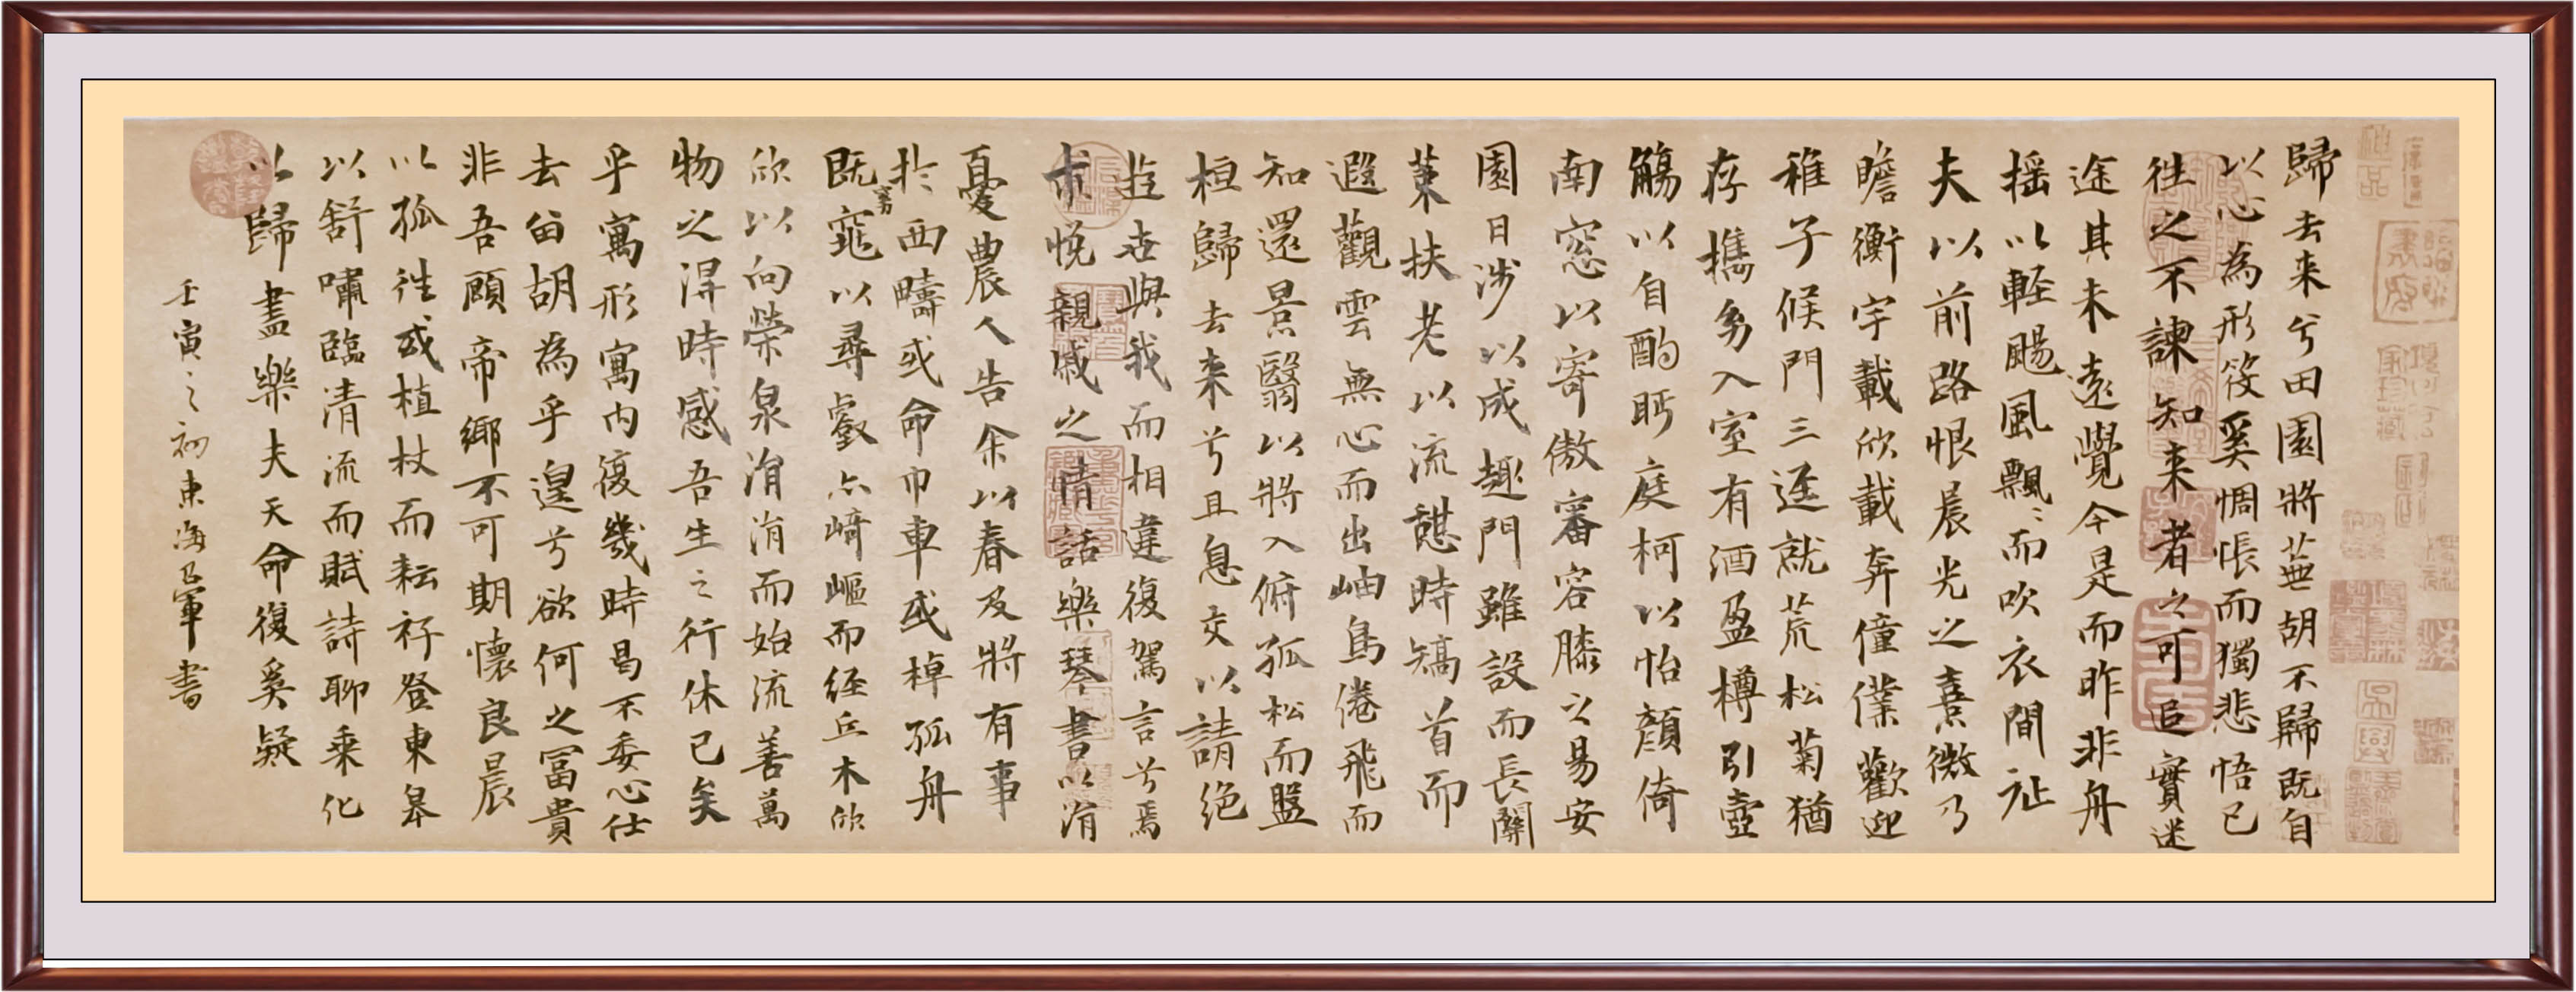 歸去来兮田園將蕪胡不歸既自
以心為形役奚惆悵而獨悲悟已
往之不諫知来者之可追實迷
途其未遠覺今是而昨非舟
揺以輕颺風飄〻而吹衣問征
夫以前路恨晨光之熹微乃
瞻衡宇載欣載奔僮僕歡迎
稚子候門三逕就荒松菊猶
存攜幼入室有酒盈樽引壺
觴以自酌眄庭柯以怡顏倚
南窓以寄傲審容膝之易安
園日涉以成趣門雖設而長關
策扶老以流憩時矯首而
遐觀雲無心而出岫鳥倦飛而
知還景翳以將入俯孤松而盤
桓歸去来兮且息交以請絕
遊世與我而相違復駕言兮焉
求悅親戚之情話樂琴書以消
憂農人告余以春及將有事
於西疇或命巾車或棹孤舟
既窈窕以尋壑亦崎嶇而經丘木欣
欣以向榮泉涓涓而始流善萬
物之得時感吾生之行休已矣
乎寓形寓內復幾時曷不委心任
去留胡為乎遑兮欲何之富貴
非吾願帝鄉不可期懷良晨
以孤往或植杖而耘耔登東皋
以舒嘯臨清流而賦詩聊乘化
以歸盡樂夫天命復奚疑
壬寅之初東海軍書